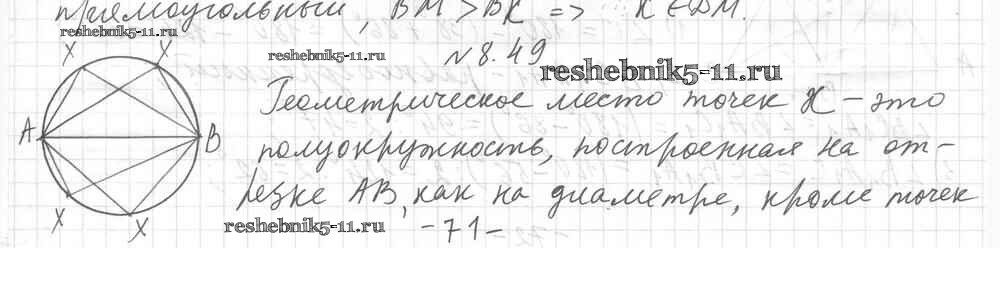 прямоугольный, BM > BK => K ∈ DM.
reshebnik5-11.ru
reshebnik5-11.ru
№8.49
reshebnik5-11.ru
X X
A B
X X
Геометрическое место точек X – это
полуокружность, построенная на от-
резке AB, как на диаметре, кроме точек
reshebnik5-11.ru
-71-